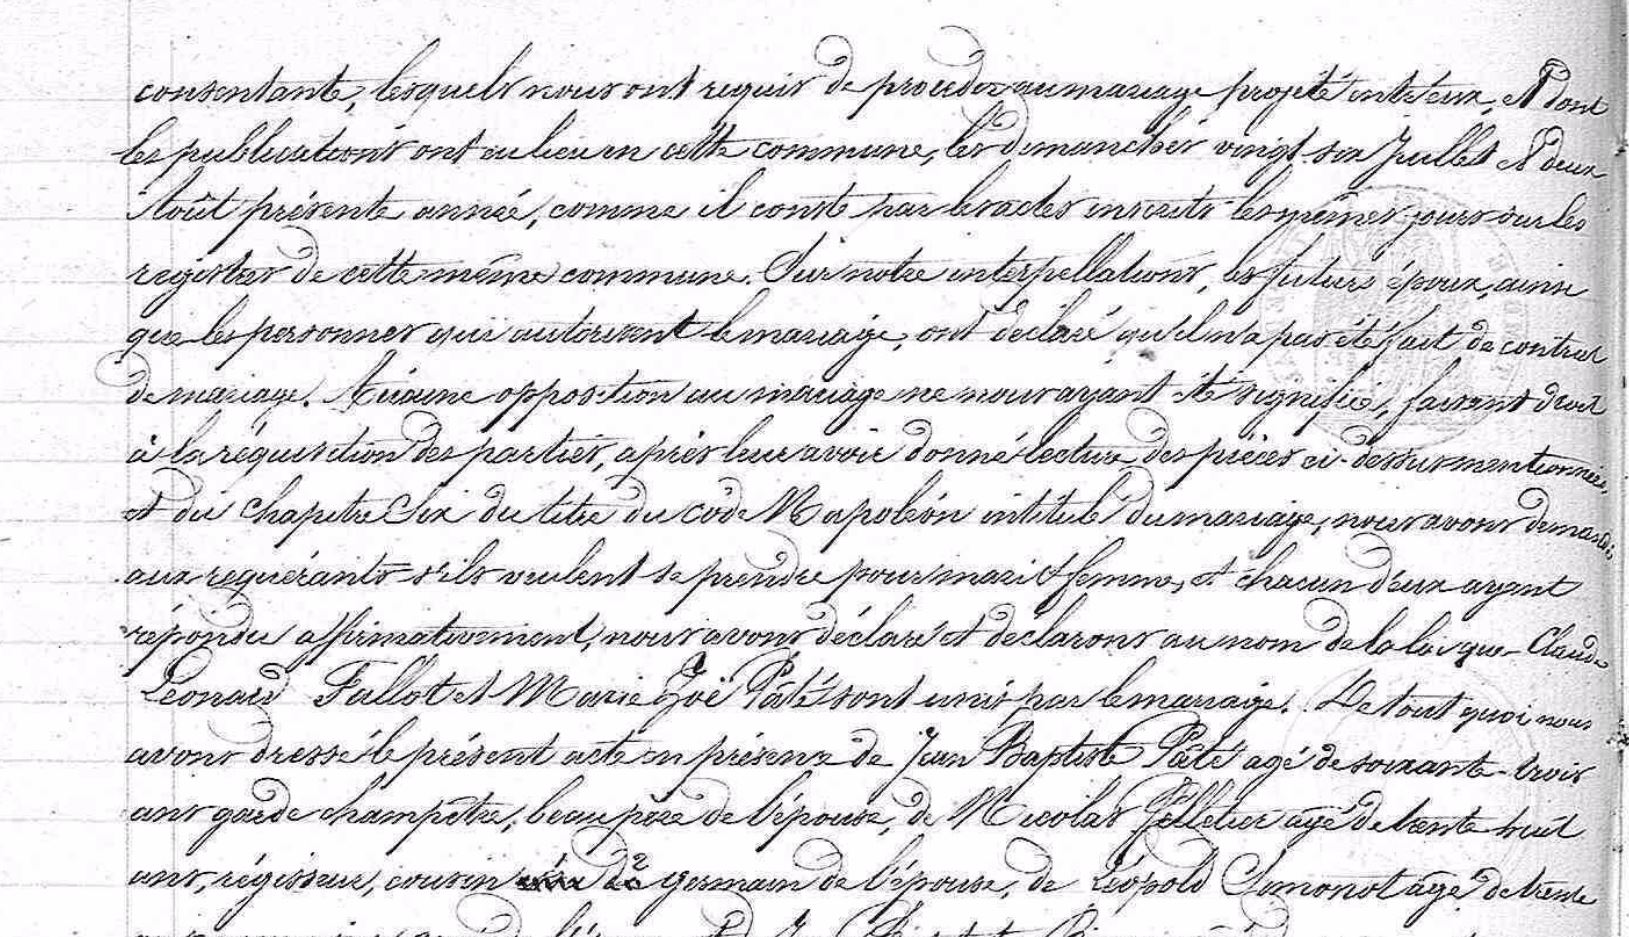 consentante, lesquels nous ont requis de procéder au mariage projeté entr'eux, et dont
les publications ont eu lieu en cette commune, les dimanches vingt six Juillet et deux
Août présente année, comme il conste par les actes inscrits les mêmes jours sur les
registres de cette même commune. Sur notre interpellation, les futurs époux, ainsi
que les personnes qui autorisent le mariage, ont déclaré qu'il n'a pas été fait de contrat
de mariage. Aucune opposition au mariage ne nous ayant été signifiée, faisant droit
à la réquisition des parties, après leur avoir donné lecture des pièces ci-dessus mentionnées,
et du chapitre Six du titre du code Napoléon intitulé du mariage, nous avons demandé
aux requérants s'ils veulent se prendre pour mari et femme, et chacun d'eux ayant
répondu affirmativement, nous avons déclaré et déclarons au nom de la loi que Claude
Léonard Fallot et Marie Zoë Pâté sont unis par le mariage. De tout quoi nous
avons dressé le présent acte en présence de Jean Baptiste Pâté agé de soixante-trois
ans garde champêtre, beau père de l'épouse, de Nicolas Pelletier agé de trente huit
ans, régisseur, cousin germain de l'épouse, de Léopold Simonot âgé de trente